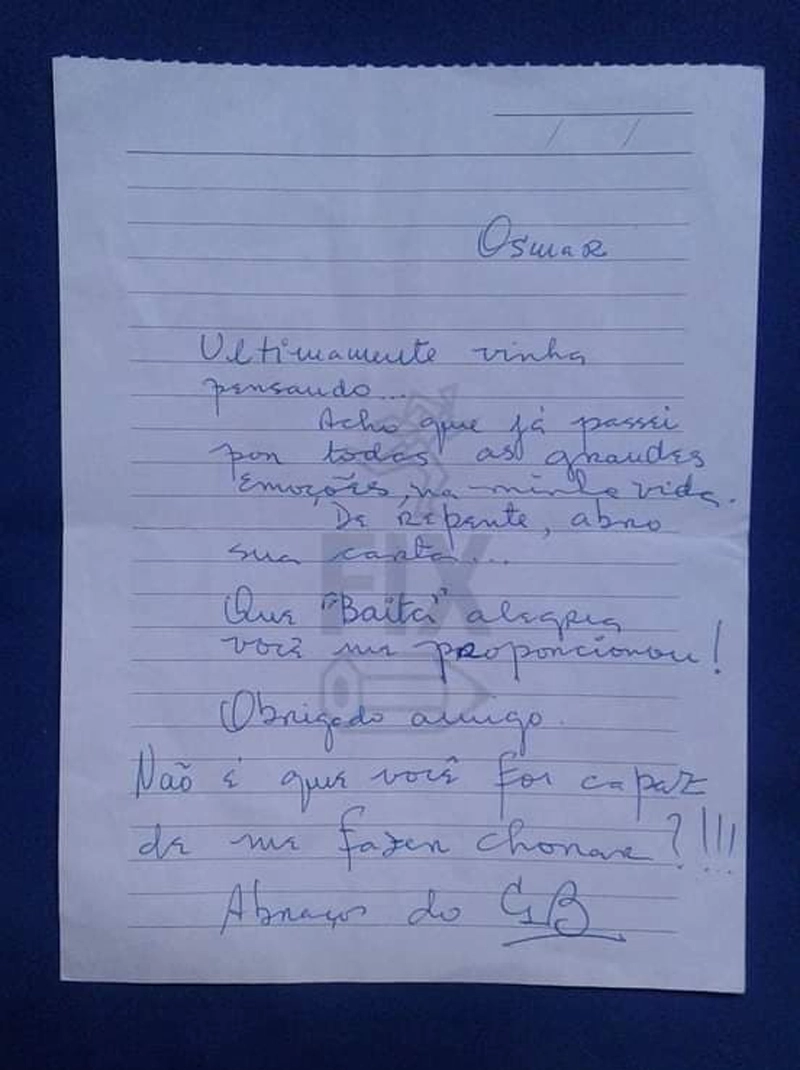 / /
Osmar
Ultimamente vinha
pensando...
Acho que já passei
por todas as grandes
emoções, na minha vida.
De repente, abro
sua carta...
Que "Baita" alegria
FIX
você me proporcionou!
Obrigado amigo.
Não é que você foi capaz
de me fazer chorar?!!!
Abraços do GB